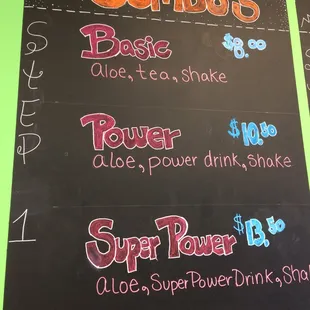 COMBO'S
STEP 1
Basic $8.00
aloe, tea, shake
Power $10.50
aloe, power drink, shake
Super Power $13.50
aloe, SuperPowerDrink, Sha